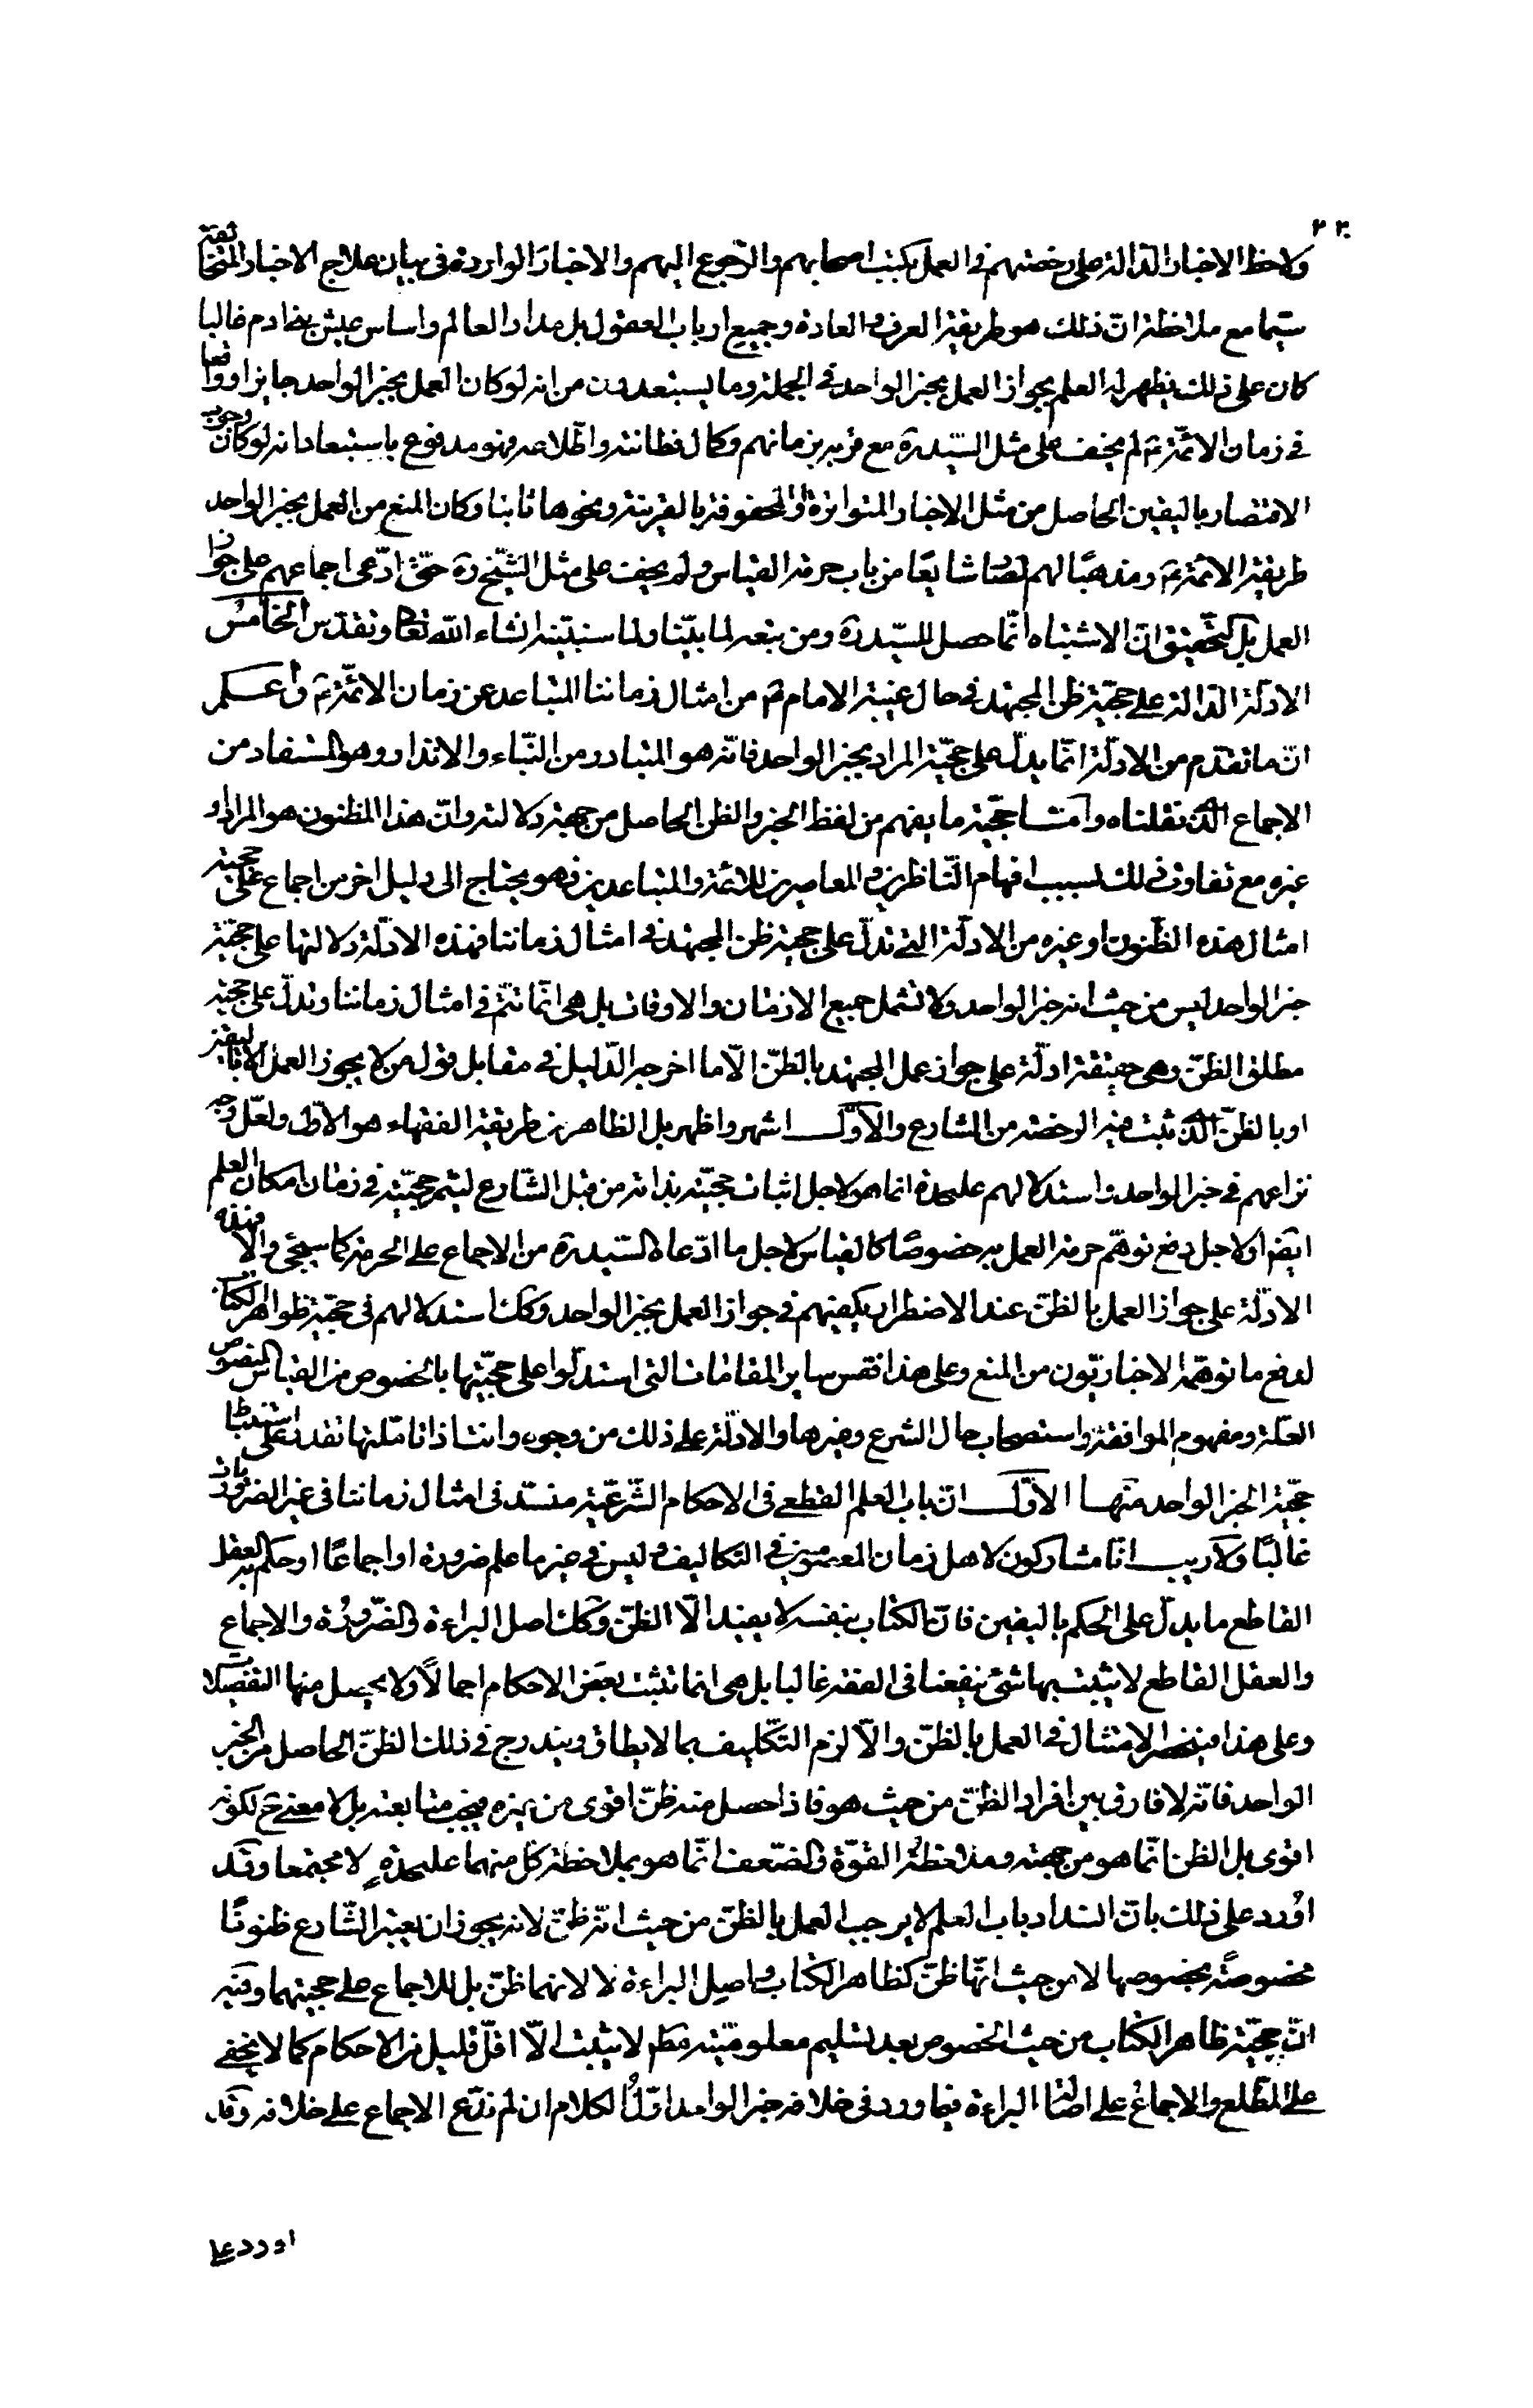 ولاحظ الاخبار الدّالة على رخصتهم فى العمل بكتب اصحابهم والرّجوع اليهم والاخبار الواردة فى بيان علاج الاخبار المتخالفة
سيّما مع ملاحظة انّ ذلك هو طريقة العرف والعادة وجميع ارباب العقول بل مدار العالم واساس عيش بنى ادم غالبا
كان على ذلك يظهر له العلم بجواز العمل بخبر الواحد فى الجملة وما يستبعدون من انه لو كان العمل بخبر الواحد جايزا وواقعا
فى زمان الائمّة ع لم يخف على مثل السّيد ره مع قربه بزمانهم وكمال فطانته واطّلاعه فهو مدفوع باستبعاد انه لو كان وجوب
الاقتصار باليقين الحاصل من مثل الاخبار المتواترة او المحفوفة بالقرينة ونحوها ثابتا وكان المنع من العمل بخبر الواحد
طريقة الائمة ع ومذهبًا لهم لصار شايعًا من باب حرمة القياس ولم يخف على مثل الشّيخ ره حتى ادّعى اجماعهم على جواز
العمل بل التحقيق انّ الاشتباه انّما حصل للسّيد ره ومن تبعه لما بيّنا ولما سنبيّنه انشاء اللّه تعالى وتقدّس الخامس
الادلّة الدّالة على حجّية ظن المجتهد فى حال غيبة الامام ع من امثال زماننا المتباعد عن زمان الائمّة ع واعلم
انّ ما تقدّم من الادلّة انّما يدلّ على حجّية المراد بخبر الواحد فانّه هو المتبادر من النّباء والانذار وهو المستفاد من
الاجماع الّذى نقلناه وامّا حجّية ما يفهم من لفظ الخبر والظن الحاصل من جهة دلالته وانّ هذا المظنون هو المراد او
غيره مع تفاوت ذلك بسبب افهام النّاظرين والمعاصرين للائمة والمتباعدين فهو يحتاج الى دليل اخر من اجماع على حجّية
امثال هذه الظّنون او غيره من الادلّة التى تدلّ على حجية ظن المجتهد فى امثال زماننا فهذه الادلّة دلالتها على حجّية
خبر الواحد ليس من حيث انه خبر الواحد ولا تشمل جميع الازمان والاوقات بل هى انّما تتمّ فى امثال زماننا وتدلّ على حجّية
مطلق الظنّ وهى حقيقة ادلّة على جواز عمل المجتهد بالظنّ الّا ما اخرجه الدّليل فى مقابل قول من لا يجوز العمل الّا باليقين
او بالظنّ الّذى ثبت فيه الرخصة من الشارع والاوّل اشهر واظهر بل الظاهر من طريقة الفقهاء هو الاوّل ولعلّ وجه
نزاعهم فى خبر الواحد واستدلالهم عليحدة انما هو لاجل اثبات حجيّته بذاته من قبل الشّارع ليتم حجيّته فى زمان امكان العلم
ايضا او لاجل دفع توهّم حرمة العمل به خصوصًا كالقياس لاجل ما ادّعاه السّيد ره من الاجماع على الحرمة كما سيجئ والّا فهذه
الادلّة على جواز العمل بالظنّ عند الاضطرار يكفيهم فى جواز العمل بخبر الواحد وكك استدلالهم فى حجّية ظواهر الكتاب
لدفع ما توهّمه الاخباريّون من المنع وعلى هذا فقس ساير المقامات التى استدلّوا على حجّيتها بالخصوص من القياس المنصوص
العلّة ومفهوم الموافقة واستصحاب حال الشرع وغيرها والادلّة على ذلك من وجوه وانت اذا تامّلتها تقدر على استنباط
حجّية الخبر الواحد منها الاوّل انّ باب العلم القطعى فى الاحكام الشّرعيّة منسدّ فى امثال زماننا فى غير الضروريات
غالبًا ولا ريب انّا مشاركون لاهل زمان المعصومين فى التكاليف وليس فى غير ما علم ضرورة او اجماعًا او حكم به العقل
القاطع ما يدلّ على الحكم باليقين فانّ الكتاب بنفسه لا يفيد الّا الظنّ وكك اصل البراءة والضّرورة والاجماع
والعقل القاطع لا يثبت بها شئ ينفعنا فى الفقه غالبا بل هى انما تثبت بعض الاحكام اجمالًا ولا يحصل منها التفصيلات
وعلى هذا فينحصر الامتثال فى العمل بالظنّ والّا لزم التّكليف بما لا يطاق ويندرج فى ذلك الظنّ الحاصل من الخبر
الواحد فانّه لا فارق بين افراد الظنّ من حيث هو فاذا حصل منه ظنّ اقوى من غيره فيجب متابعته بل لا معنى ح لكونه
اقوى بل الظن انّما هو من جهته وملاحظة القوّة والضّعف انّما هو بملاحظة كلّ منهما عليحدةٍ لا مجتمعا وقد
اورد على ذلك بانّ انسداد باب العلم لا يوجب العمل بالظنّ من حيث انّه ظنّ لانه يجوز ان يعتبر الشّارع ظنونًا
مخصوصة بخصوصها لا من حيث انّها ظنّ كظاهر الكتاب واصل البراءة لا لانهما ظنّ بل للاجماع على حجيتهما وفيه
انّ حجّية ظاهر الكتاب من حيث الخصوص بعد تسليم معلوميّته مط لا يثبت الّا اقلّ قليل من الاحكام كما لا يخفى
على المطّلع والاجماع على اصالة البراءة فيما ورد فى خلافه خبر الواحد اوّل الكلام ان لم ندّع الاجماع على خلافه وقد
اورد على